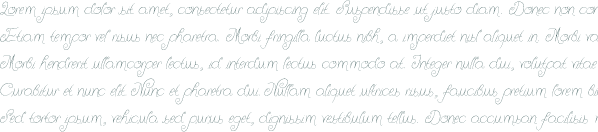 Lorem ipsum dolor sit amet, consectetur adipiscing elit. Suspendisse ut justo diam. Donec non con
Etiam tempor vel risus nec pharetra. Morbi fringilla luctus nibh, a imperdiet nisl aliquet in. Morbi va
Morbi hendrerit ullamcorper lectus, id interdum lectus commodo at. Integer nulla dui, volutpat vitae
Curabitur et nunc elit. Nunc et pharetra dui. Nullam aliquet ultrices risus, faucibus pretium lorem bi
Sed tortor ipsum, vehicula sed purus eget, dignissim vestibulum tellus. Donec accumsan facilisis